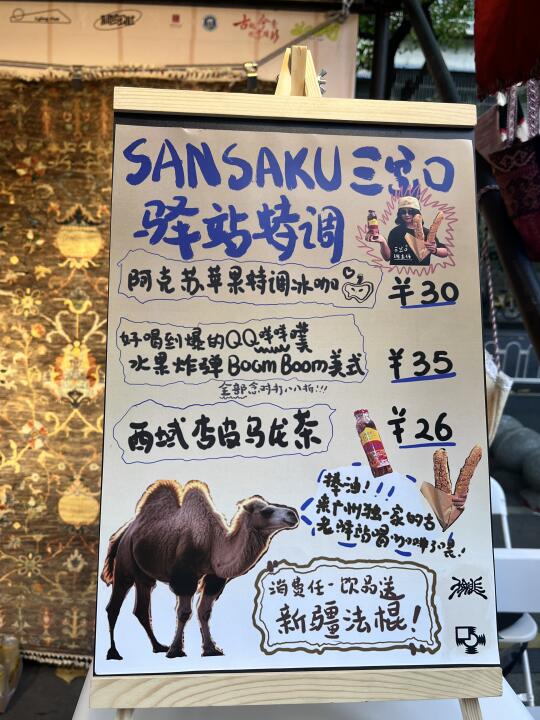 SANSAKU三宝口
驿站特调
阿克苏苹果特调冰咖
￥30
好喝到爆的QQ咩咩噗
水果炸弹BoomBoom美式
￥35
全部念对打八八折!!!
西域杏皮乌龙茶
￥26
捧油!
来广州独一家的古
老驿站喝咖啡了噢!
消费任一饮品送
新疆法棍!